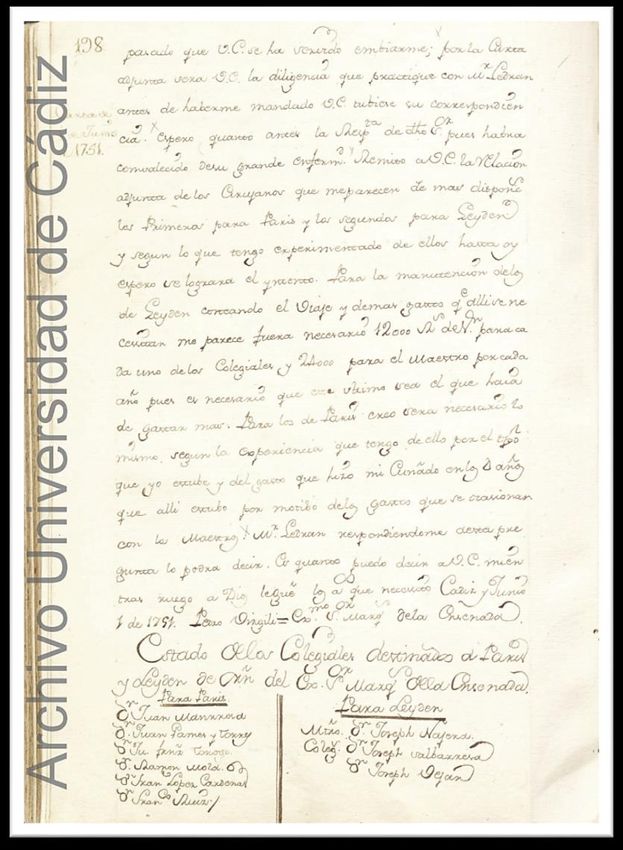 198
pasado que V.C. se ha servido embiarme; por la Carta
adjunta vera V.C. la diligencia que practique con Mr. Ledran
antes de haberme mandado V.C. tubiese su correspondien
cia. Espero quanto antes la Respta. de dho Sor. pues habra
combalecido desu grande enfermd. Remito a V.C. la relacion
adjunta de los Cirujanos que meparecen de mas dispone
los Primeros para Paris y los segundos para Leyden
y segun lo que tengo experimentado de ellos hasta oy
espero se lograra el yntento. Para la manutencion delos
de Leyden contando el Viaje y demas gastos qe. alli se ne
cesitan me parece fuera necesario 12000 Rs. deVn. para ca
da uno de los Colegiales y 24000 para el Maestro por cada
año pues es necesario que este ultimo sea el que haia
de gastar mas. Para los de Paris creo sera necesario lo
mismo, segun la experiencia que tengo de ello por el tpo.
que yo estube y del gasto que hizo mi Cuñado en los años
que alli estubo por motibo delos gastos que se ocasionan
con los Maestros Mr. Ledran respondiendome desta pre
gunta lo podra decir. Es quanto puedo decir a V.C. mien
tras ruego a Dios legue. los as. que necesito Cadiz y Junio
1 de 1751. Pedro Virgili = Exmo. Sor. Marqs. dela Ensenada.
Estado de los Colegiales destinados a Paris
y Leyden de Orn. del Exmo. Sor. Marqs. dela Ensenada.
Para Paris.
Dn. Juan Manresa
Dn. Juan Pames y torrey
Dn. Ju. frnz
Dn. Ramon
Dn. Fran Lopez Cardenas
Dn. Franco. Ruiz
Para Leyden
Mtro. Dn. Joseph Najera.
Coleg. Dn. Joseph Salbarresa
Dn. Joseph Dejan
de
Junio
1751.
Archivo Universidad de Cádiz